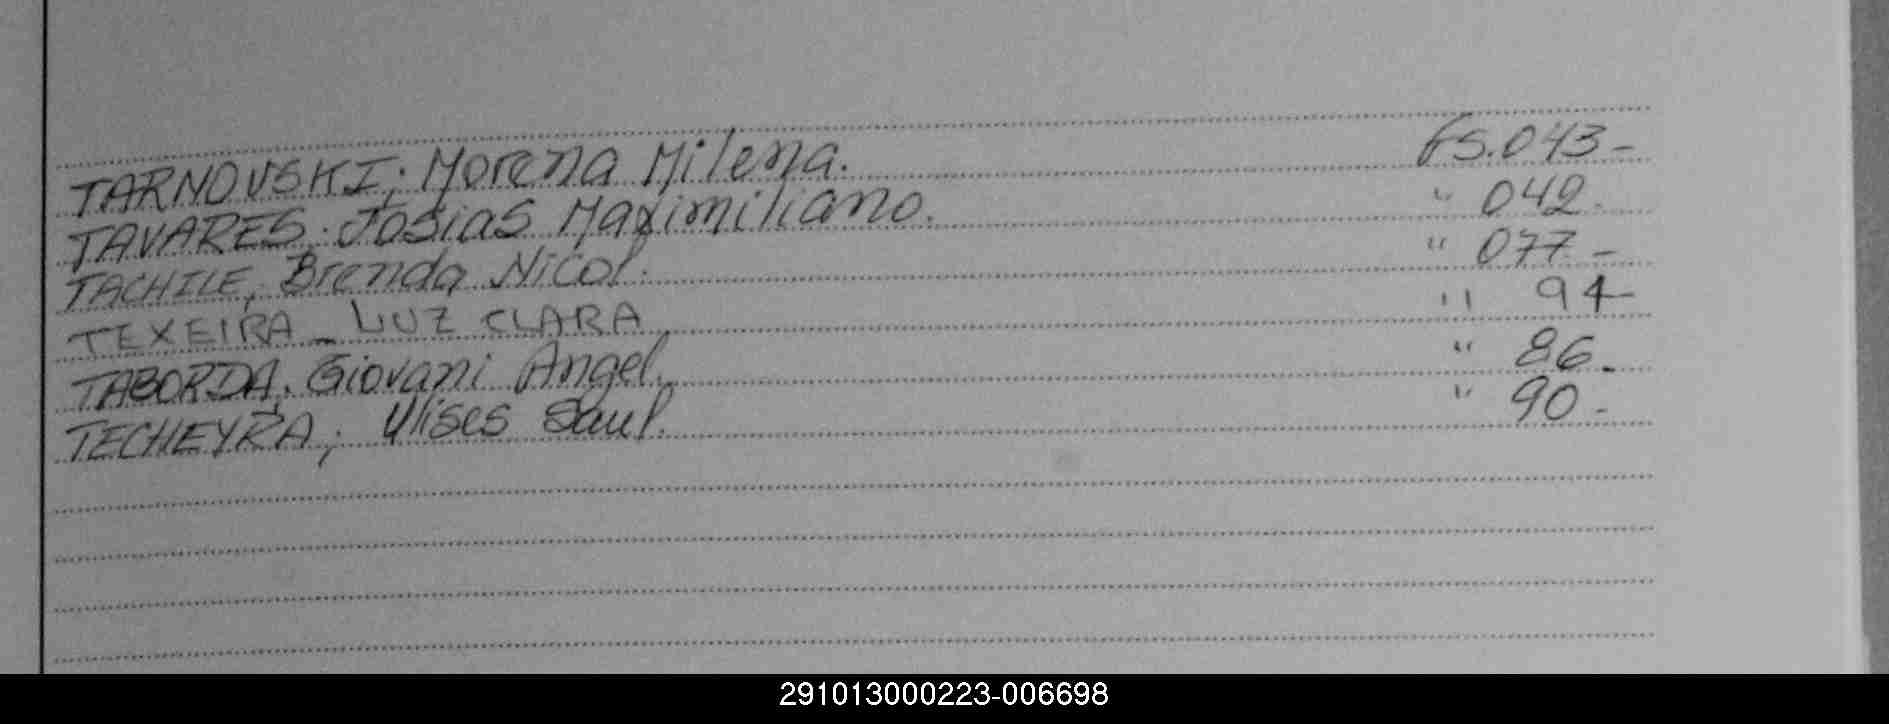 TARNOVSKI; Morena Milena. Fs. 043-
TAVARES. Josias Maximiliano. " 042.
TACHILE, Brenda Nicol. " 077-
TEXEIRA - LUZ CLARA " 94-
TABORDA, Giovani Angel. " 86.
TECHEYRA, Ulises Saul. " 90-
291013000223-006698